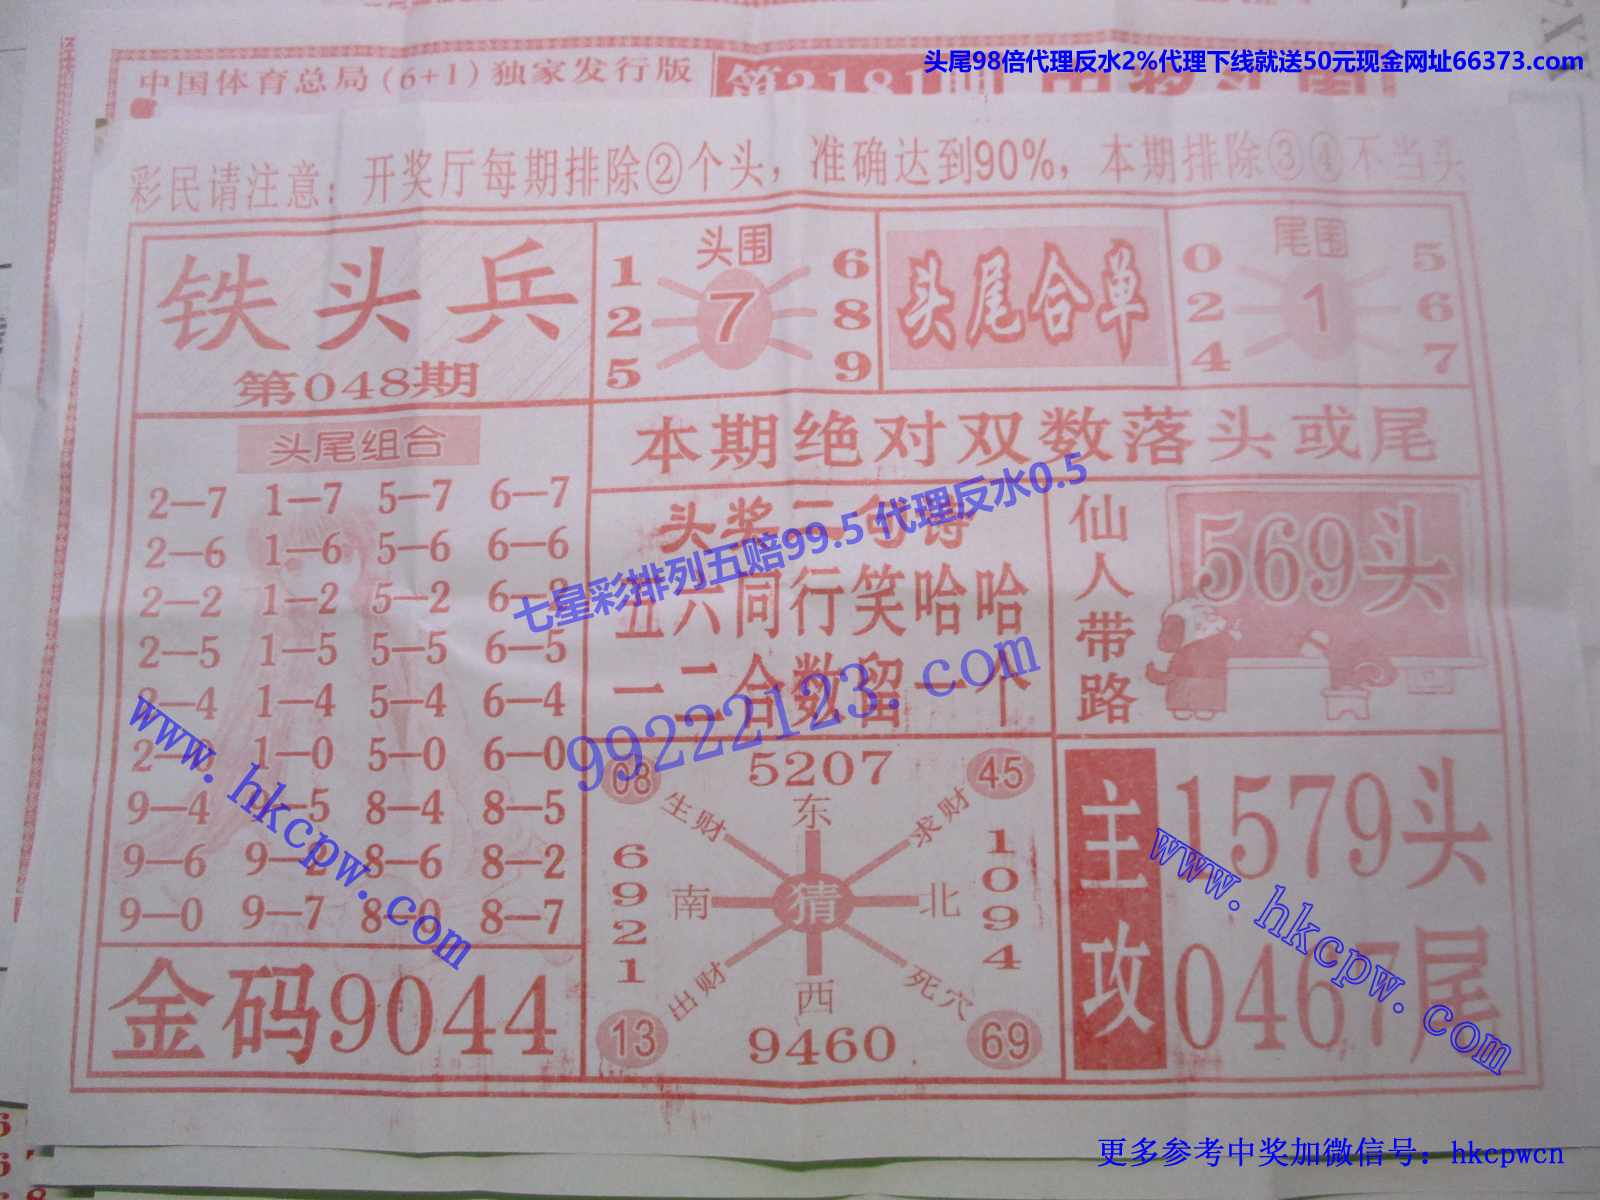 头尾98倍代理反水2%代理下线就送50元现金网址66373.com
中国体育总局(6+1)独家发行版
彩民请注意：开奖厅每期排除②个头，准确达到90%，本期排除③④不当头
铁头兵
第048期
头围
1 2 5
7
6 8 9
头尾合单
尾围
0 2 4
1
5 6 7
本期绝对双数落头或尾
头尾组合
2—7 1—7 5—7 6—7
2—6 1—6 5—6 6—6
2—2 1—2 5—2 6—2
2—5 1—5 5—5 6—5
2—4 1—4 5—4 6—4
2—0 1—0 5—0 6—0
9—4 9—5 8—4 8—5
9—6 9—2 8—6 8—2
9—0 9—7 8—0 8—7
金码9044
头奖二句诗
五六同行笑哈哈
一二合数留一个
七星彩排列五赔99.5 代理反水0.5
99222123.com
仙人带路
569头
08 5207 45
生财 东 求财
6921 南 猜 北 1094
出财 西 死穴
13 9460 69
主攻
1579头
0467尾
www.hkcpw.com
www.hkcpw.com
更多参考中奖加微信号：hkcpwcn